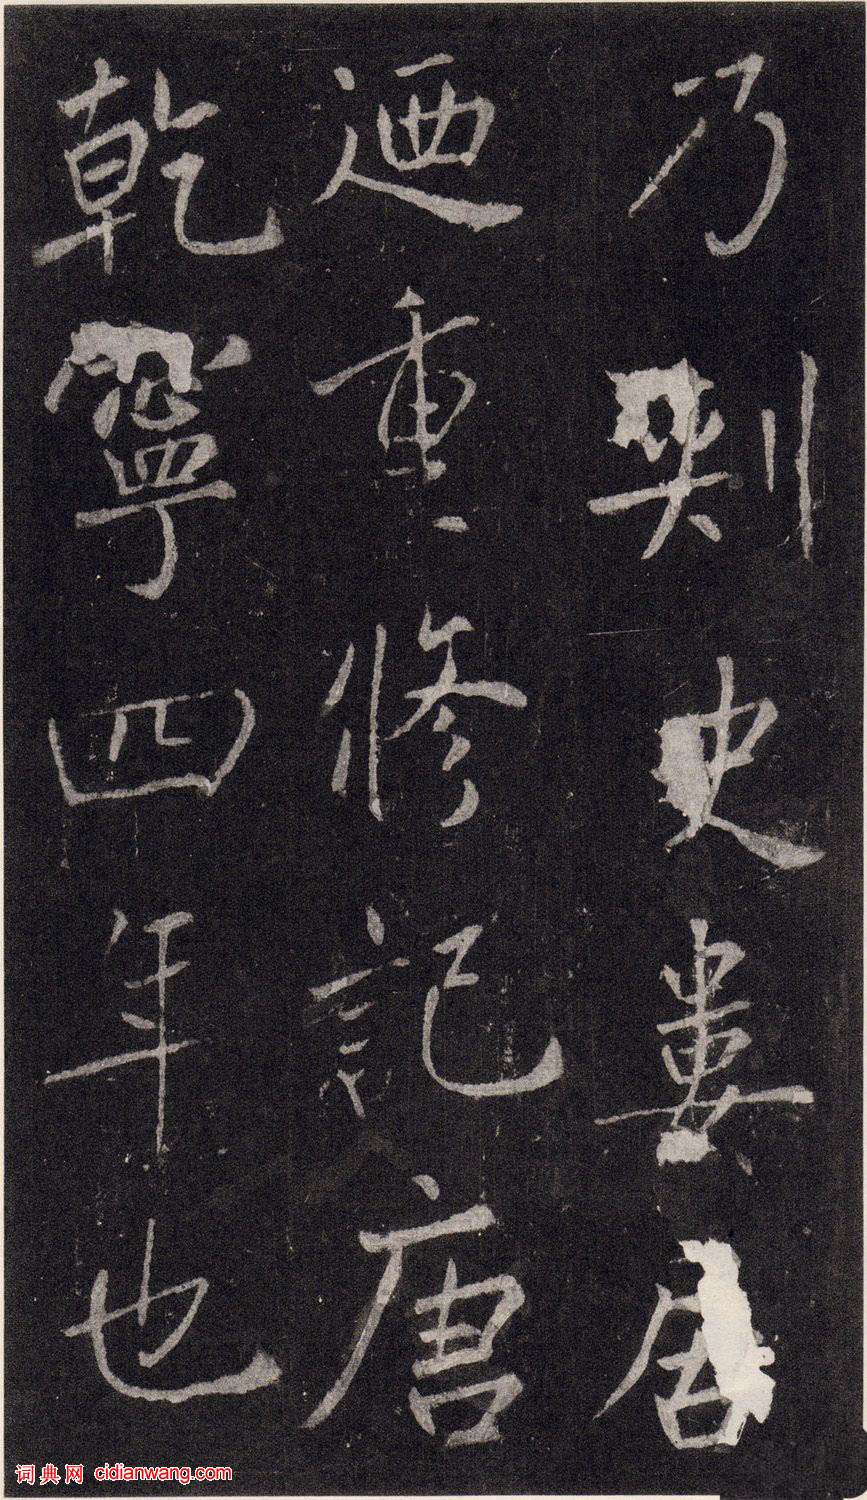 乃刺史婁居
迺重修記唐
乾寧四年也
词典网 cidianwang.com